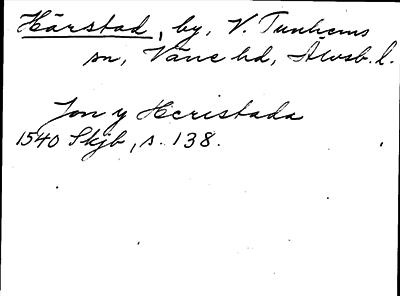 Härstad, by, V. Tunhems
sn, Väne hd, Älvsb. l.
Jon y Heristada
1540 Skjb, s. 138.